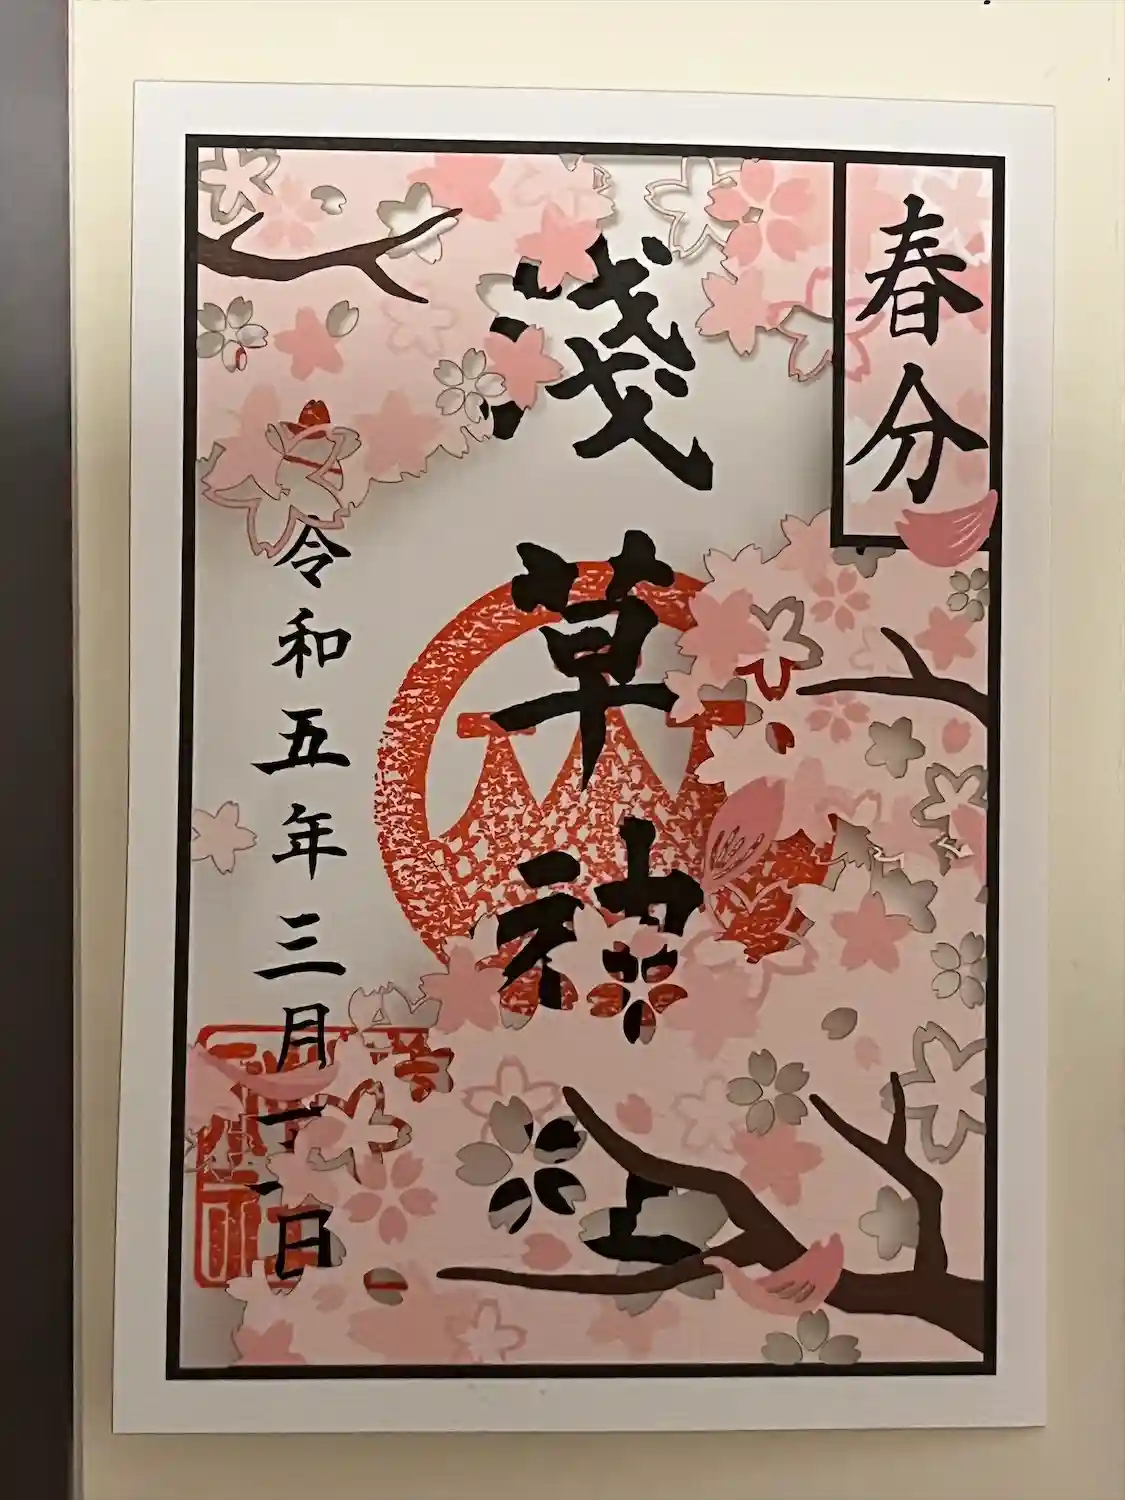 春分
淺草神社
令和五年三月二十一日